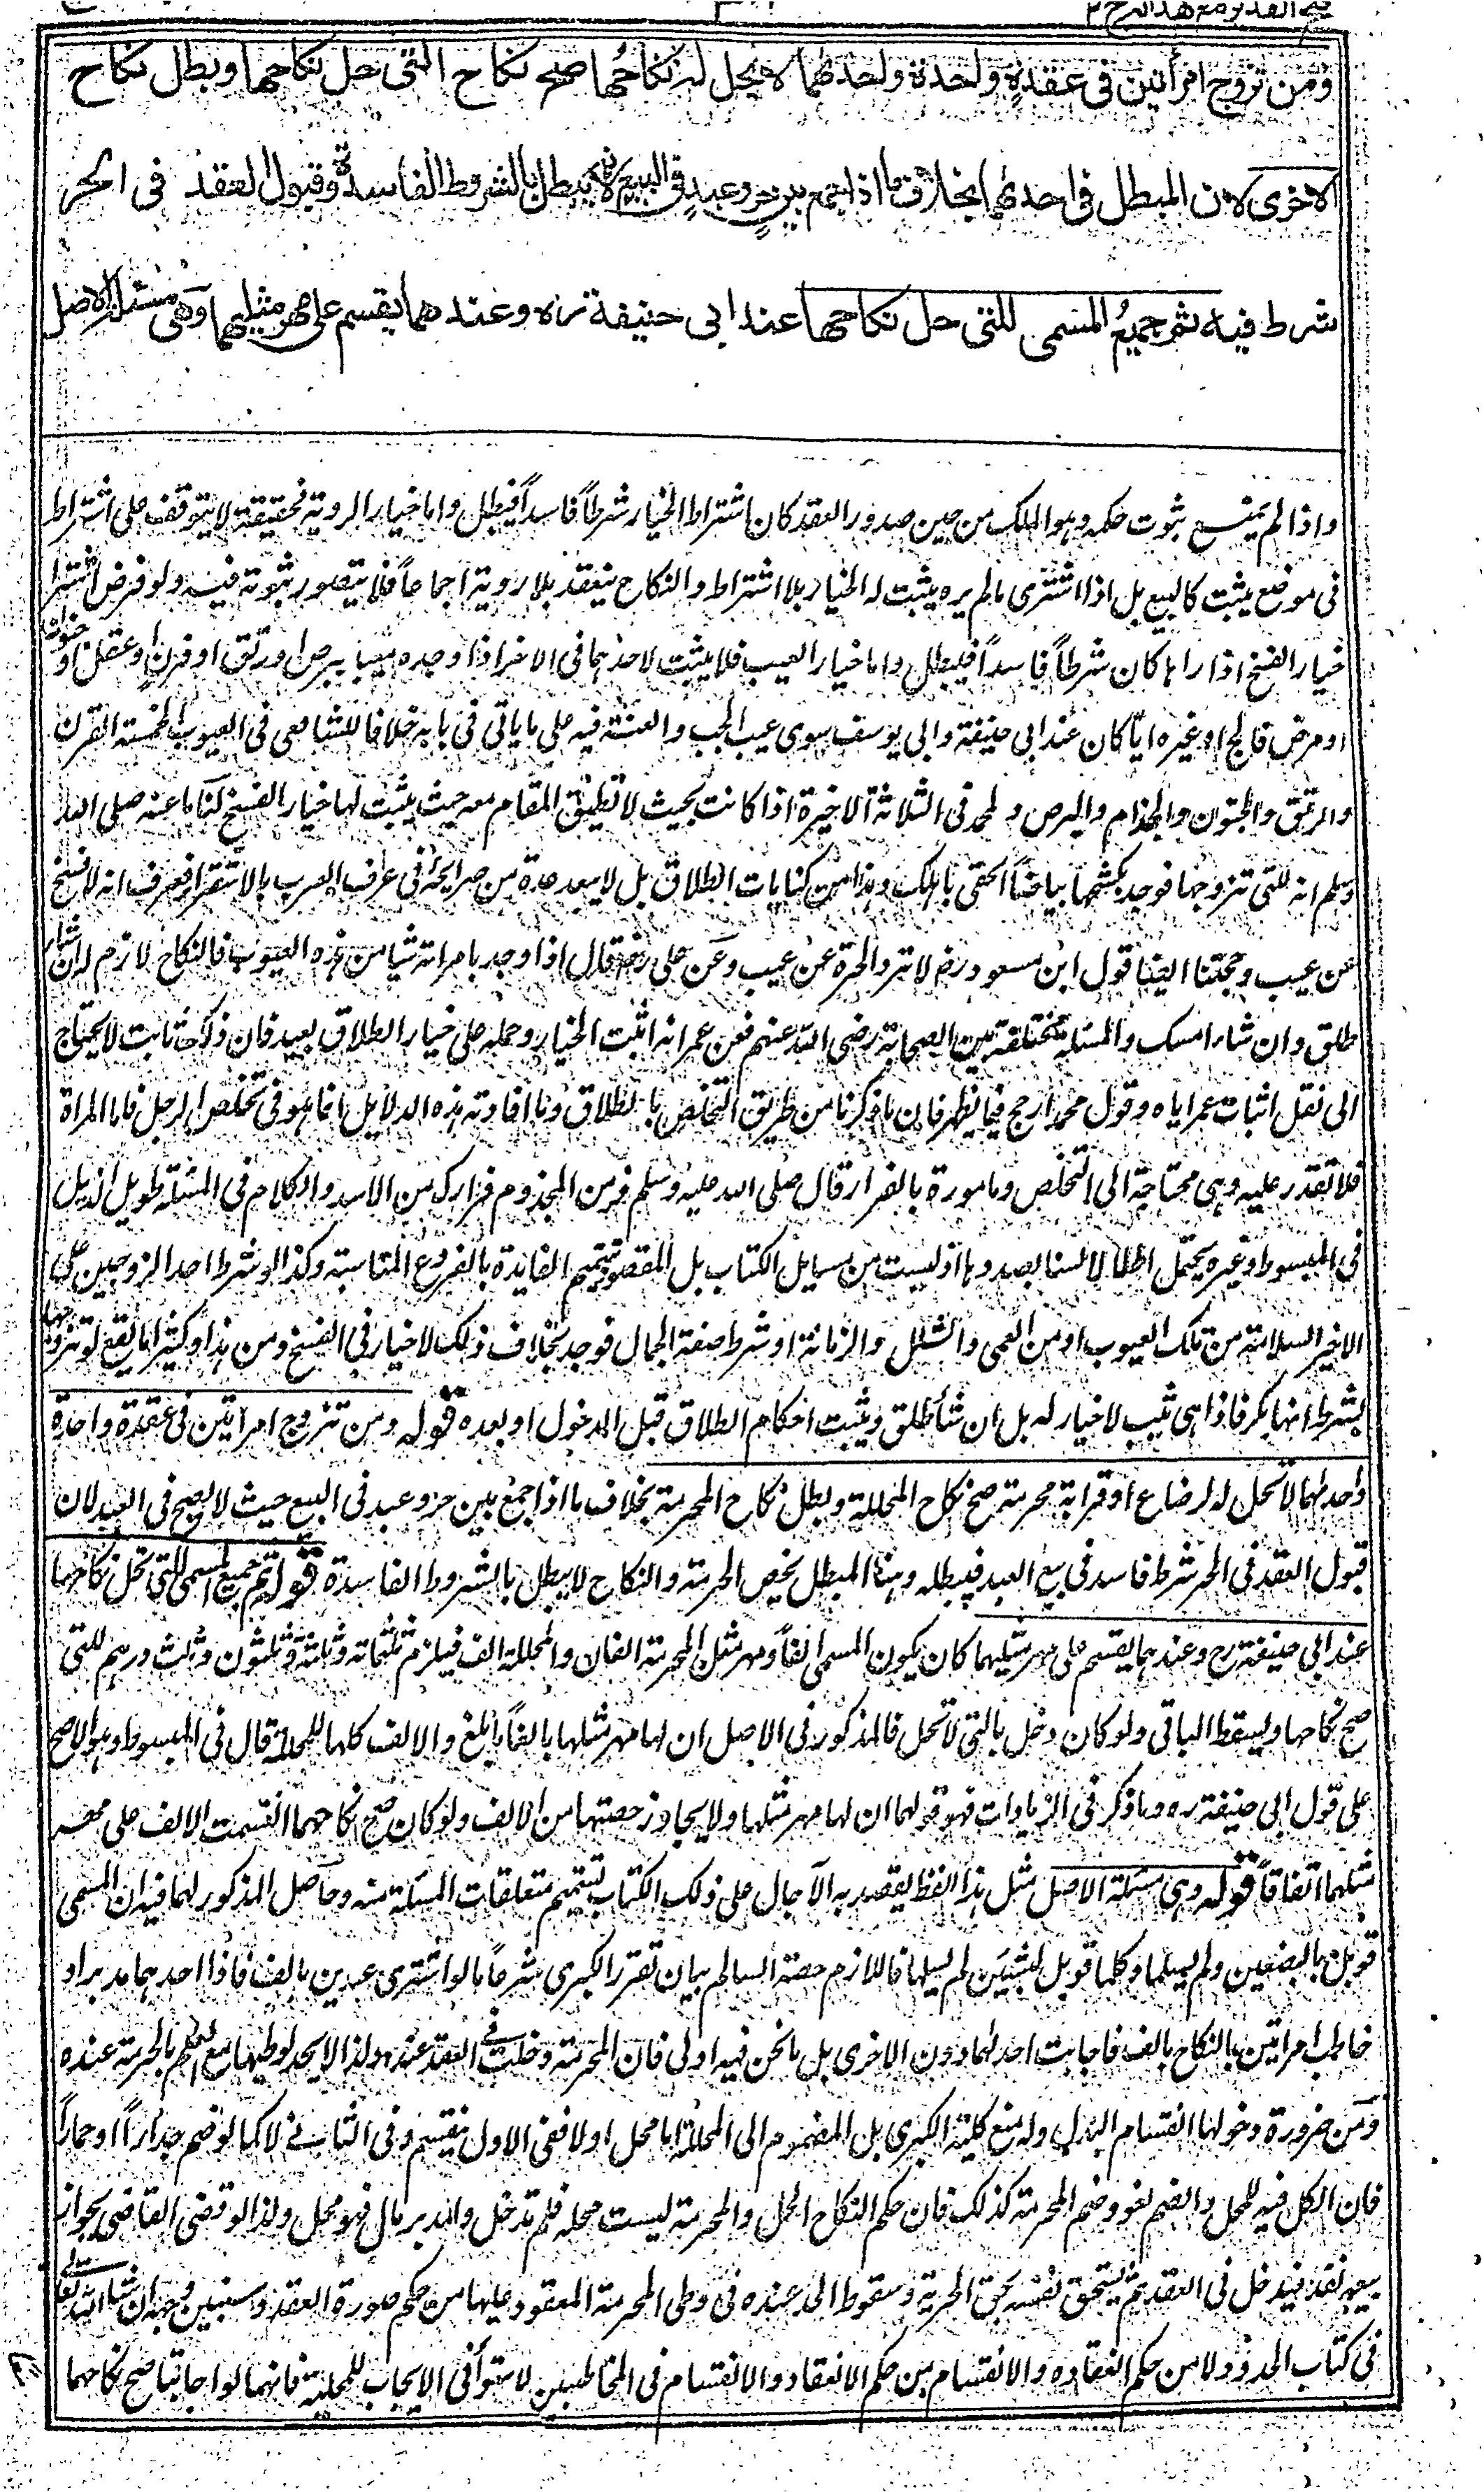 فتح القدير مع هداية ج ٢
ومن تزوج امرأتين في عقدة واحدة واحدهما لا يحل له نكاحها صح نكاح التي حل نكاحها وبطل نكاح
الاخرى لان المبطل في احدهما بخلاف ما اذا جمع بين حر وعبد في البيع لانه يبطل بالشروط الفاسدة وقبول العقد في الحر
شرط فيه ثم جميع المسمى للتي حل نكاحها عند ابي حنيفة ره وعندهما يقسم على مهر مثليهما وهي مسئلة الاصل
واذا لم يمنع ثبوت حكمه وهو الملك من حين صدور العقد كان اشتراط الخيار شرطاً فاسداً فيبطل واما خيار الروية فحقيقة لا يتوقف على اشتراط
في موضع يثبت كالبيع بل اذا اشترى مالم يره يثبت له الخيار بلا اشتراط والنكاح ينعقد بلا روية اجماعاً فلا يتصور ثبوته فيه ولو فرض اشترا
خيار الفسخ اذا راها كان شرطاً فاسداً فيبطل واما خيار العيب فلا يثبت لاحدهما في الاخر اذا وجده معيبا ببرص او رتق او قرن او عقل او جنون
او مرض فالج او غيره ايّا كان عند ابي حنيفة وابي يوسف سوى عيب الجب والعنة فيه على ما ياتي في بابه خلافا للشافعي في العيوب الخمسة القرن
والرتق والجنون والجذام والبرص ولمحمد في الثلاثة الاخيرة اذا كانت بحيث لا تطيق المقام معه حيث يثبت لها خيار الفسخ لنا ما عنه صلى الله
وسلم انه للتي تزوجها فوجد بكشحها بياضاً الحقي باهلك وهذا من كنايات الطلاق بل لا يبعد عده من صرايحه في عرف العرب بالاستقراء فعرف انه لا فسخ
عن عيب وحجتنا ايضا قول ابن مسعود رض لا ترد الحرة عن عيب وعن علي رض قال اذا وجد بامراته شيا من هذه العيوب فالنكاح لازم له ان شاء
طلق وان شاء امسك والمسئلة مختلفة بين الصحابة رضي الله عنهم فعن عمر انه اثبت الخيار وحمله على خيار الطلاق بعيد فان ذلك ثابت لا يحتاج
الى نقل اثبات عمر اياه وقول محمد ارجح فيما يظهر فان ما ذكرنا من طريق التخلص بالطلاق وما افادته هذه الدلايل انما هو في تخلص الرجل فاما المراة
فلا تقدر عليه وهي محتاجة الى التخلص ومامورة بالفرار قال صلى الله عليه وسلم فر من المجذوم فرارك من الاسد والكلام في المسئلة طويل الذيل
في المبسوط وغيره يحتمل اطالا لسنا بصددها اذ ليست من مسايل الكتاب بل المقصود تتميم الفايدة بالفروع المناسبة وكذا لو شرط احد الزوجين على
الاخر السلامة من تلك العيوب او من العمى والشلل والزمانة او شرط صفة الجمال فوجد بخلاف ذلك لا خيار في الفسخ ومن هذا وكثيرا ما يقع لو تزوجها
بشرط انها بكر فاذا هي ثيب لا خيار له بل ان شأ طلق ويثبت احكام الطلاق قبل الدخول او بعده قوله ومن تزوج امراتين في عقدة واحدة
واحدهما لا تحل له لرضاع او قرابة محرمة صح نكاح المحللة وبطل نكاح المحرمة بخلاف ما اذا جمع بين حر وعبد في البيع حيث لا يصح في العبد لان
قبول العقد في الحر شرط فاسد في بيع العبد فيبطله وهنا المبطل يخص المحرمة والنكاح لا يبطل بالشروط الفاسدة قوله ثم جميع المسمى للتي تحل نكاحها
عند ابي حنيفة رح وعندهما يقسم على مهر مثليهما كان يكون المسمى الفاً ومهر مثل المحرمة الفان والمحللة الف فيلزم ثلثمائة وثلثة وثلثون وثلث درهم للتي
صح نكاحها ويسقط الباقي ولو كان دخل بالتي لا تحل فالمذكور في الاصل ان لها مهر مثلها بالغاً ما بلغ والالف كلها للمحللة قال في المبسوط وهو الاصح
على قول ابي حنيفة ره وما ذكر في الزيادات فهو قولهما ان لها مهر مثلها ولا يجاوز حصتها من الالف ولو كان صح نكاحهما انقسمت الالف على مهر
مثلهما اتفاقاً قوله وهي مسئلة الاصل مثل هذا اللفظ يقصد به الآحال على ذلك الكتاب لتتميم متعلقات المسئلة منه وحاصل المذكور لهما فيه ان المسمى
قوبل بالبضعين ولم يسلما وكلما قوبل بشيئين لم يسلما فاللازم حصة السالم بيان تقرر الكبرى شرعاً ما لو اشترى عبدين بالف فاذا احدهما مدبر او
خاطب امراتين بالنكاح بالف فاجابت احدهما دون الاخرى بل ما نحن فيه اولى فان المحرمة دخلت في العقد عنده ولذا لا يحد لوطيها مع العلم بالحرمة عنده
ومن ضرورة دخولها انقسام البدل وله منع كلية الكبرى بل المضموم الى المحللة اما محل اولا ففي الاول ينقسم وفي الثاني لا كما لو ضم جداراً او حماراً
فان الكل فيه للمحل والضم لغو وضم المحرمة كذلك فان حكم النكاح الحل والمحرمة ليست محله فلم تدخل والمدبر مال فهو محل ولذا لو قضى القاضي بجواز
بيعه نفذ فيدخل في العقد ثم يستحق نفسه بحق الحرية وسقوط الحد عنده في وطى المحرمة المعقود عليها من حكم صورة العقد وسنبين وجهه ان شاء الله تعالى
في كتاب الحدود لا من حكم انعقاده والانقسام من حكم الانعقاد والانقسام في المخاطبتين لاستوأ في الايجاب للمحلية فانهما لو اجابتا صح نكاحهما